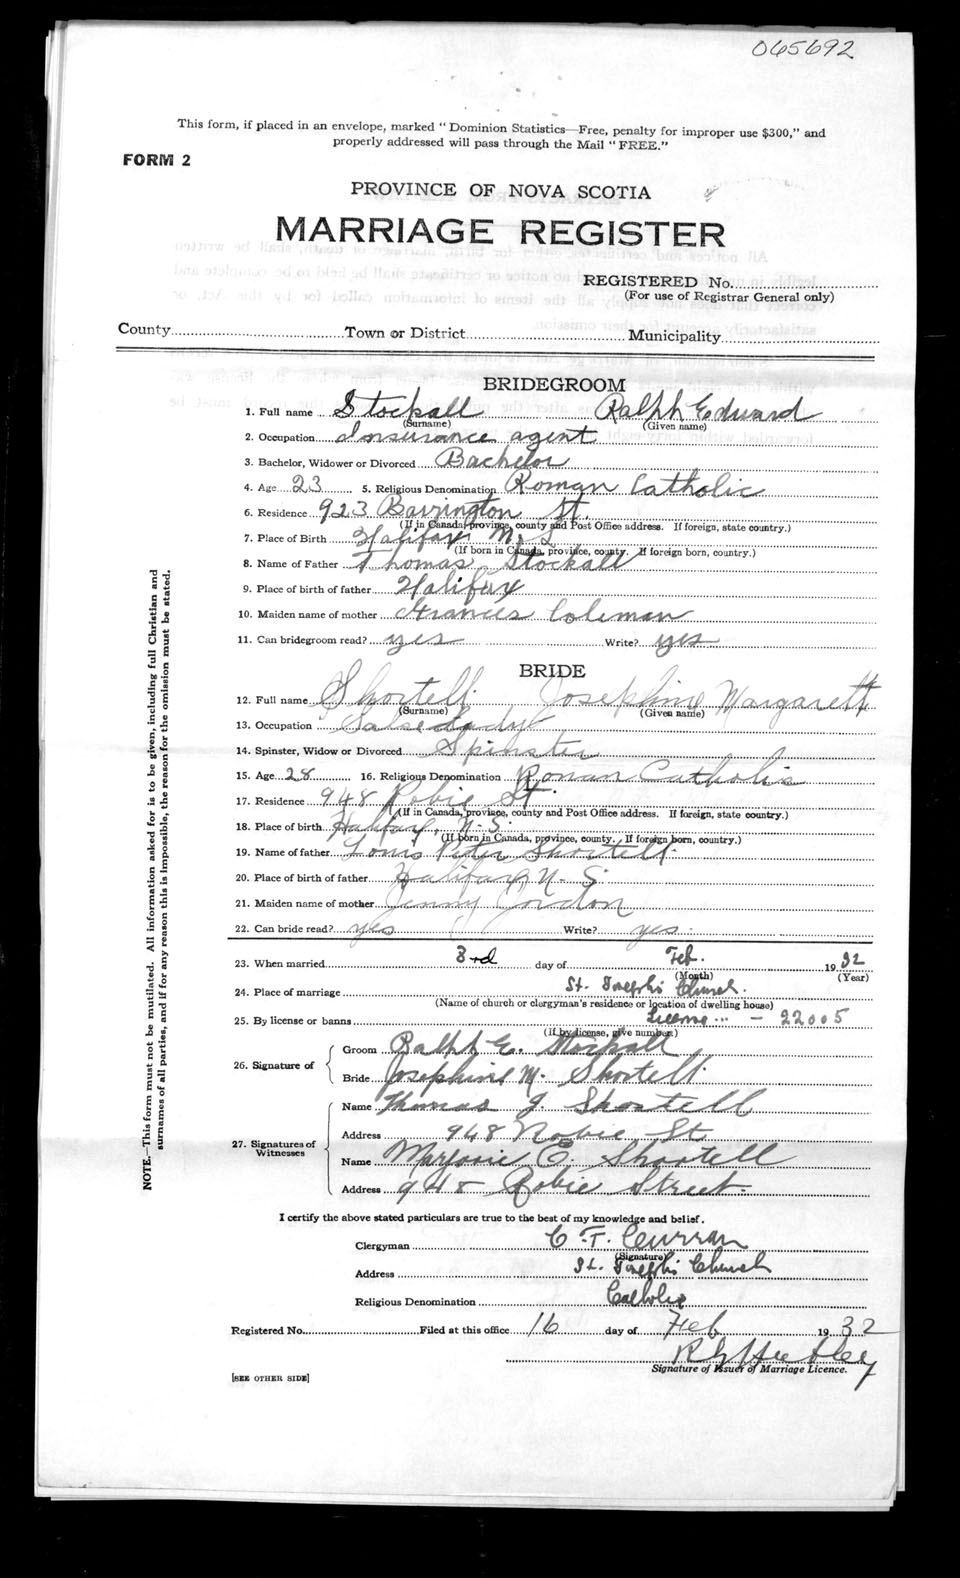 065692
This form, if placed in an envelope, marked "Dominion Statistics—Free, penalty for improper use $300," and
properly addressed will pass through the Mail "FREE."
FORM 2
PROVINCE OF NOVA SCOTIA
MARRIAGE REGISTER
REGISTERED No.
(For use of Registrar General only)
County Town or District Municipality
BRIDEGROOM
1. Full name Stockall Ralph Edward
(Surname) (Given name)
2. Occupation Insurance agent
3. Bachelor, Widower or Divorced Bachelor
4. Age 23 5. Religious Denomination Roman Catholic
6. Residence 923 Barrington St.
(If in Canada, province, county and Post Office address. If foreign, state country.)
7. Place of Birth Halifax N.S
(If born in Canada, province, county. If foreign born, country.)
8. Name of Father Thomas Stockall
9. Place of birth of father Halifax
10. Maiden name of mother Frances Coleman
11. Can bridegroom read? yes Write? yes
BRIDE
12. Full name Shortell Josephine Margarett
(Surname) (Given name)
13. Occupation Saleslady
14. Spinster, Widow or Divorced Spinster
15. Age 28 16. Religious Denomination Roman Catholic
17. Residence 948 Robie St.
(If in Canada, province, county and Post Office address. If foreign, state country.)
18. Place of birth Halifax, N.S.
(If born in Canada, province, county. If foreign born, country.)
19. Name of father Louis Peter Shortell
20. Place of birth of father Halifax, N.S.
21. Maiden name of mother Jenny Jordon
22. Can bride read? yes Write? yes.
23. When married 3rd day of Feb. 1932
(Month) (Year)
24. Place of marriage St. Joseph's Church.
(Name of church or clergyman's residence or location of dwelling house)
25. By license or banns License — 22005
(If by license, give number)
26. Signature of Groom Ralph E. Stockall
Bride Josephine M. Shortell
27. Signatures of Witnesses Name Thomas J. Shortell
Address 948 Robie St
Name Marjorie E. Shortell
Address 948 Robie Street.
I certify the above stated particulars are true to the best of my knowledge and belief.
Clergyman C.T. Curran
(Signature)
Address St. Joseph's Church
Religious Denomination Catholic
Registered No. Filed at this office 16 day of Feb 1932
Signature of Issuer of Marriage Licence.
[SEE OTHER SIDE]
NOTE.—This form must not be mutilated. All information asked for is to be given, including full Christian and
surnames of all parties, and if for any reason this is impossible, the reason for the omission must be stated.